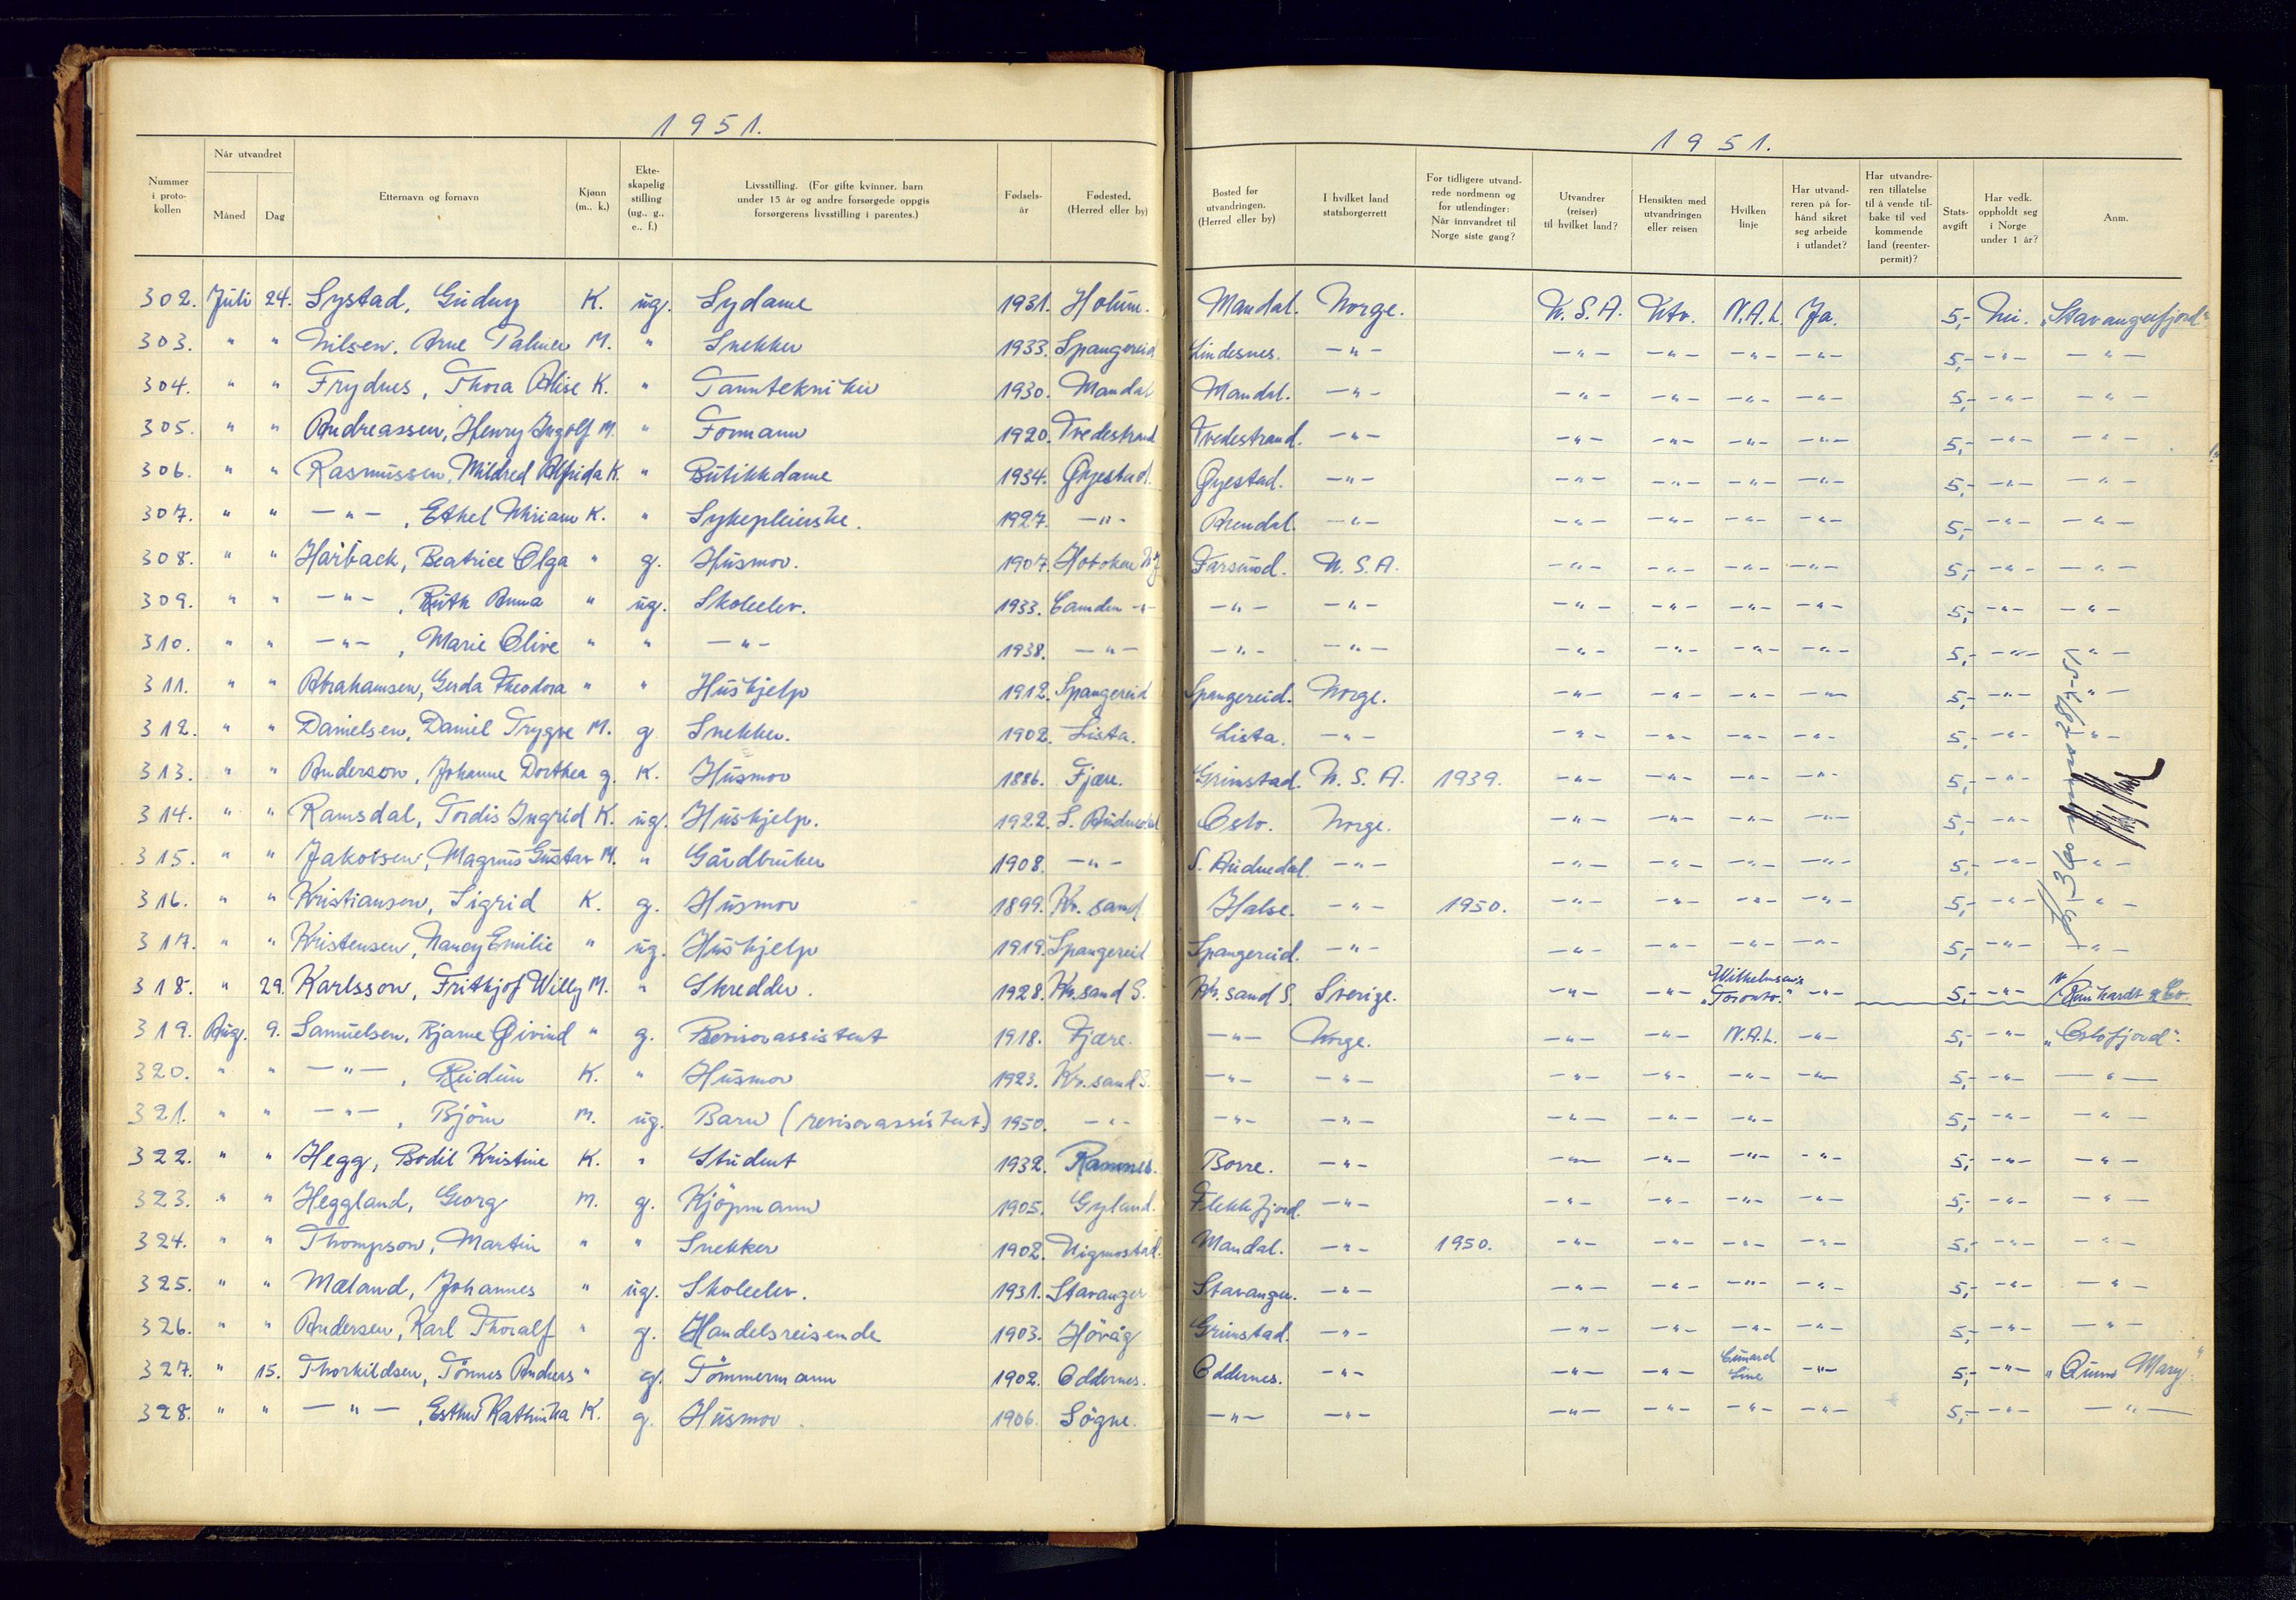 1951.
1951.
Nummer i proto- kollen | Når utvandret Måned | Dag | Etternavn og fornavn | Kjønn (m., k.) | Ekte- skapelig stilling (ug., g., e., f.) | Livsstilling. (For gifte kvinner, barn under 15 år og andre forsørgede oppgis forsørgerens livsstilling i parentes.) | Fødsels- år | Fødested, (Herred eller by) | Bosted før utvandringen. (Herred eller by) | I hvilket land statsborgerrett | For tidligere utvand- rede nordmenn og for utlendinger: Når innvandret til Norge siste gang? | Utvandrer (reiser) til hvilket land? | Hensikten med utvandringen eller reisen | Hvilken linje | Har utvand- reren på for- hånd sikret seg arbeide i utlandet? | Har utvandre- ren tillatelse til å vende til- bake til ved kommende land (reenter- permit)? | Stats- avgift | Har vedk. oppholdt seg i Norge under 1 år? | Anm.
302. Juli 24. Systad, Gudny K. ug. Sydame 1931. Holum. Mandal. Norge. U.S.A. Utv. N.A.L. Ja. 5,- Nei. "Stavangerfjord."
303. " " Nilsen, Arne Palmer M. " Snekker 1933. Spangereid Lindesnes. -"- -"- -"- -"- -"- 5,- -"- -"-
304. " " Frydnes, Thora Alise K. " Tanntekniker 1930. Mandal Mandal. -"- -"- -"- -"- -"- 5,- -"- -"-
305. " " Andreassen, Henry Ingolf M. " Formann 1920. Tvedestrand Tvedestrand. -"- -"- -"- -"- -"- 5,- -"- -"-
306. " " Rasmussen, Mildred Alfrida K. " Butikkdame 1934. Øyestad. Øyestad. -"- -"- -"- -"- -"- 5,- -"- -"-
307. " " -"-, Ethel Miriam K. " Sykepleierske. 1927. -"- Arendal. -"- -"- -"- -"- -"- 5,- -"- -"-
308. " " Hårback, Beatrice Olga " g. Husmor. 1907. Hoboken N.J. Farsund. U.S.A. -"- -"- -"- -"- 5,- -"- -"-
309. " " -"-, Ruth Anna " ug. Skoleelev. 1933. Camden -"- -"- -"- -"- -"- -"- -"- 5,- -"- -"-
310. " " -"-, Marie Olive " " -"- 1938. -"- -"- -"- -"- -"- -"- -"- 5,- -"- -"-
311. " " Abrahamsen, Gerda Theodora " " Hushjelp 1912. Spangereid Spangereid. Norge. -"- -"- -"- -"- 5,- -"- -"-
312. " " Danielsen, Daniel Trygve M. g Snekker. 1902. Lista. Lista. -"- -"- -"- -"- -"- 5,- -"- -"-
313. " " Anderson, Johanne Dorthea g. K. Husmor 1886. Fjære. Grimstad. U.S.A. 1939. -"- -"- -"- -"- 5,- -"-
314. " " Ramsdal, Tordis Ingrid K. ug. Hushjelp. 1922. S. Audnedal Oslo. Norge. -"- -"- -"- -"- 5,- -"-
315. " " Jakobsen, Magnus Gustav M. " Gårdbruker 1908. -"- S. Audnedal. -"- -"- -"- -"- -"- 5,- -"- -"-
316. " " Kristiansen, Sigrid K. g. Husmor 1899. Kr. sand Halse. -"- 1950. -"- -"- -"- -"- 5,- -"- -"-
317. " " Kristensen, Nancy Emilie " ug. Hushjelp 1919. Spangereid Spangereid. -"- -"- -"- -"- -"- 5,- -"- -"-
318. " 29. Karlsson, Frithjof Willy M. " Skredder. 1928. Kr.sand S. Kr.sand S. Sverige. -"- -"- Wilhelmsen's "Toronto." -"- 5,- -"- v/ Reinhardt & Co.
319. Aug. 9. Samuelsen, Bjarne Øivind " g. Revisorassistent 1918. Fjære. -"- Norge. -"- -"- N.A.L. -"- 5,- -"- "Oslofjord".
320. " " -"-, Reidun K. " Husmor 1923. Kr.sand S. -"- -"- -"- -"- -"- -"- 5,- -"- -"-
321. " " -"-, Bjørn M. ug. Barn (revisorassistent) 1950. -"- -"- -"- -"- -"- -"- 5,- -"- -"-
322. " " Hegg, Bodil Kristine K. " Student 1932. Ramnes. Borre. -"- -"- -"- -"- -"- 5,- -"- -"-
323. " " Heggland, Georg M. g. Kjøpmann 1905. Gyland. Flekkfjord. -"- -"- -"- -"- -"- 5,- -"- -"-
324. " " Thompson, Martin " " Snekker 1902. Vigmostad. Mandal. -"- 1950. -"- -"- -"- -"- 5,- -"- -"-
325. " " Mæland, Johannes " ug. Skoleelev. 1931. Stavanger Stavanger. -"- -"- -"- -"- -"- 5,- -"- -"-
326. " " Andersen, Karl Thoralf " g. Handelsreisende 1903. Høvåg Grimstad. -"- -"- -"- -"- -"- 5,- -"- -"-
327. " 15. Thorkildsen, Tønnes Andreas " g. Tømmermann 1902. Oddernes. Oddernes. -"- -"- -"- Cunard Line -"- 5,- -"- "Queen Mary".
328. " " -"-, Esther Kathinka K. g. Husmor. 1906. Søgne. -"- -"- -"- -"- -"- -"- 5,- -"- -"-